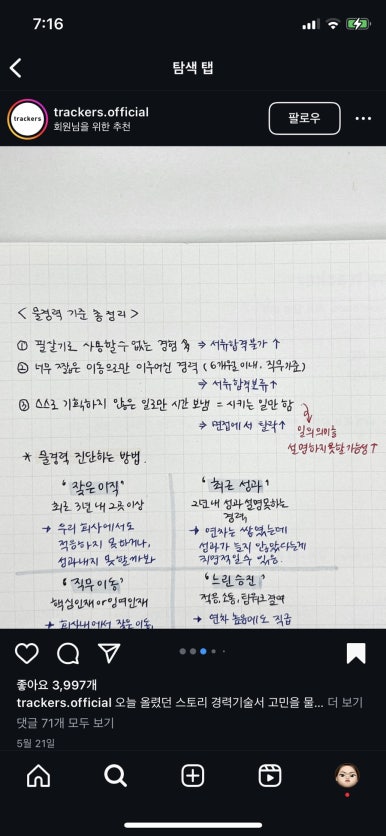 7:16
탐색 탭
trackers
trackers.official
회원님을 위한 추천
팔로우
< 물경력 기준 총정리 >
① 필살기로 사용할 수 없는 경험 ↑ ⇒ 서류합격불가 ↑
② 너무 잦은 이동으로만 이루어진 경력 (6개월 이내, 직무기준)
⇒ 서류합격보류 ↑
③ 스스로 기획하지 않은 일로만 시간 보냄 = 시키는 일만 함
⇒ 면접에서 탈락 ↑
일의 의미를
설명하지 못할 가능성 ↑
* 물경력 진단하는 방법.
‘잦은 이직’
최근 3년 내 2곳 이상
→ 우리 회사에서도
적응하지 못할까봐,
성과내지 못할까봐
‘최근 성과’
2년 내 성과 설명 못하는
경력,
→ 연차는 쌓였는데
성과가 높지 않았다는게
치명적일 수 있음.
‘직무 이동’
핵심인재 or 잉여인재
→ 회사내에서 잦은 이동,
‘느린 승진’
적응, 소통, 팀워크 결여
→ 연차 높음에도 직급
좋아요 3,997개
trackers.official 오늘 올렸던 스토리 경력기술서 고민을 물... 더 보기
댓글 71개 모두 보기
5월 21일